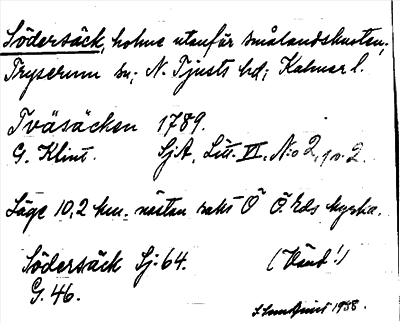 Södersäck, holme utanför smålandskusten;
Tryserum sn; N. Tjusts hd; Kalmar l.
Tväsäcken 1789.
G. Klint. SjA, Litt. VI. N:o 2, 
Läge 10,2 km. nästan rakt Ö Ö. Eds kyrka.
Södersäck Sj: 64. (Vänd!)
G. 46.
1938.